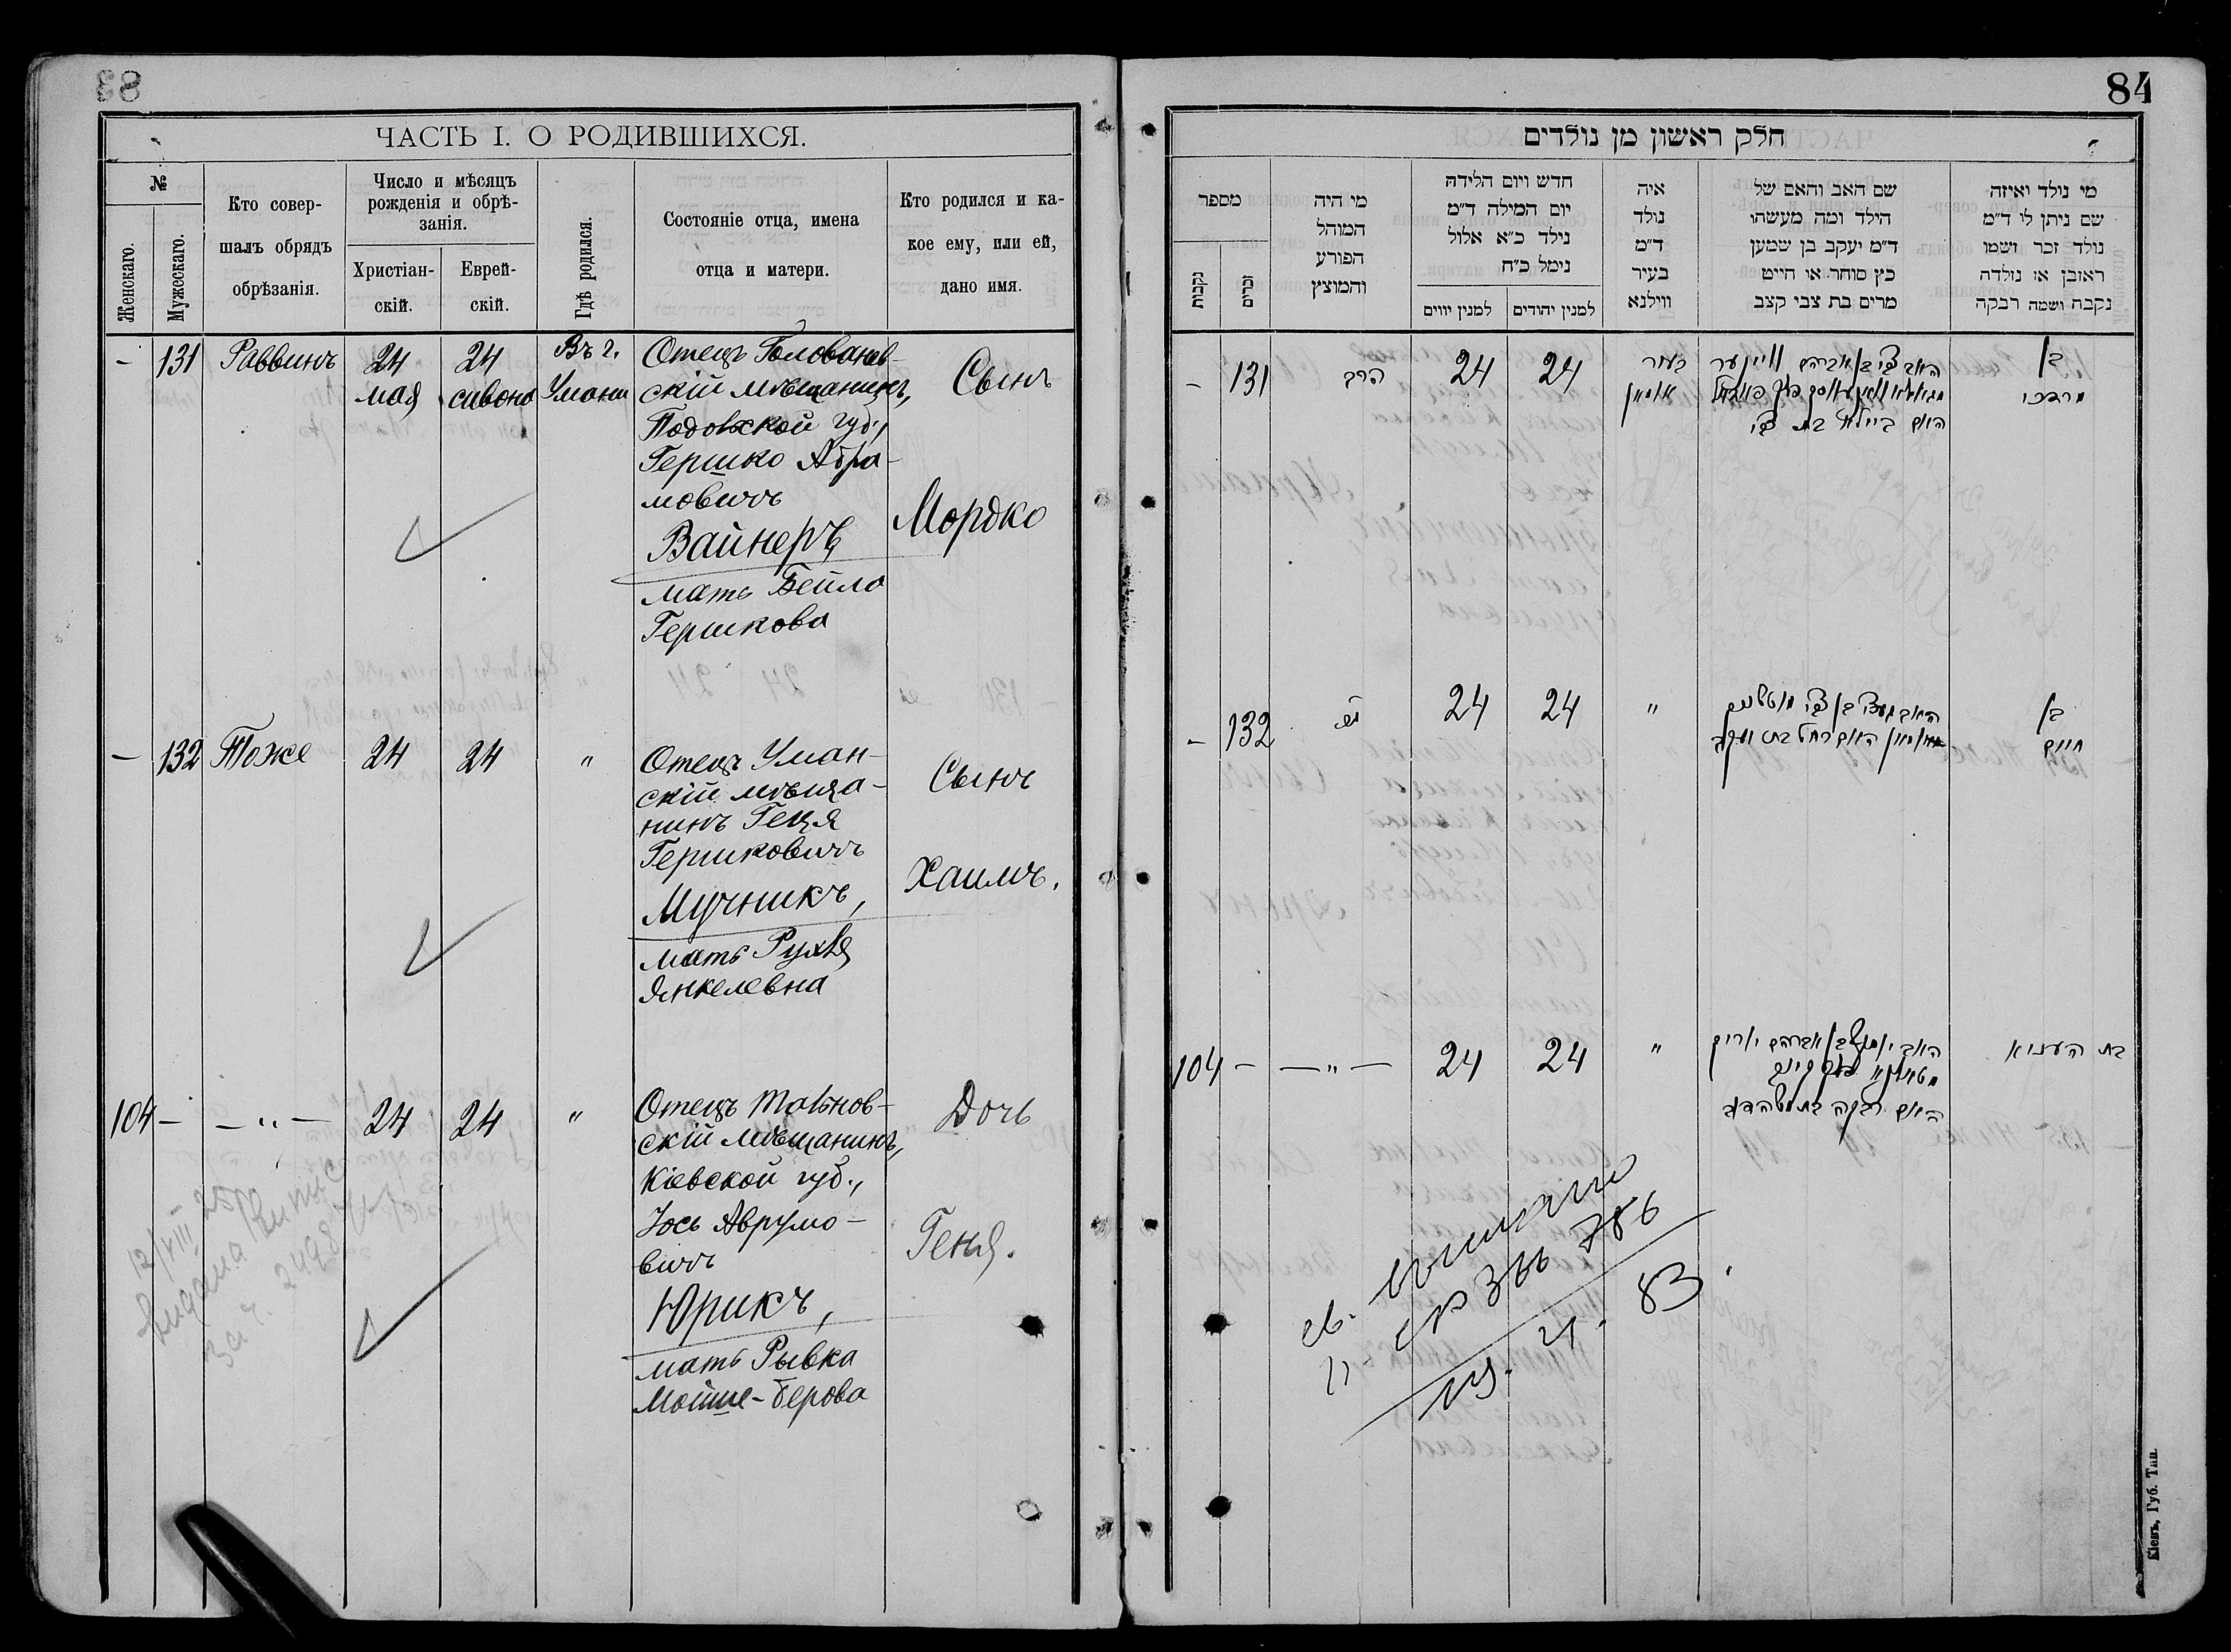 83
ЧАСТЬ I. О РОДИВШИХСЯ.
№
Женскаго.
Мужескаго.
Кто совер-
шалъ обрядъ
обрѣзанія.
Число и мѣсяцъ
рожденія и обрѣ-
занія.
Христіан-
скій.
Еврей-
скій.
Гдѣ родился.
Состояніе отца, имена
отца и матери.
Кто родился и ка-
кое ему, или ей,
дано имя.
– 131 Раввинъ 24 24 Въ г.
мая сивона Умани
Отецъ Голованев-
скій мѣщанинъ,
Подольской губ.,
Гершко Абра-
мовичъ
Вайнеръ
мать Бейла
Гершкова
Сынъ
Мордко
– 132 Тоже 24 24 "
Отецъ Уман-
скій мѣща-
нинъ Геця
Гершковичъ
Мучникъ,
мать Рухля
Янкелевна
Сынъ
Хаимъ.
104 – – " – 24 24 "
Отецъ Тальнов-
скій мѣщанинъ,
Кіевской губ.,
Іось Аврумо-
вичъ
Юрикъ,
мать Рывка
Мойше-Берова
Дочь
Геня.
12/VIII 25
видана
за ч. 2498
84
חלק ראשון מן נולדים
מספר
נקבות
זכרים
מי היה
המוהל
הפורע
והמוצץ
חדש ויום הלידה
יום המילה ד"מ
נילד כ"א אלול
נימל כ"ח
למנין יווים
למנין יהודים
איה
נולד
ד"מ
בעיר
ווילנא
שם האב והאם של
הילד ומה מעשהו
ד"מ יעקב בן שמען
כץ סוחר או חייט
מרים בת צבי קצב
מי נולד ואיזה
שם ניתן לו ד"מ
נולד זכר ושמו
ראובן או נולדה
נקבה ושמה רבקה
– 131 הרב 24 24
בעיר
אומאן
האב צבי בן אברהם וויינער
האם ביילא בת צבי
בן
מרדכי
– 132 24 24 "
האם רחל בת יעקב
בן
חיים
104 – – " – 24 24 "
האם רבקה בת משה דוב
בת העניא
83.
Кіевъ, Губ. Тип.